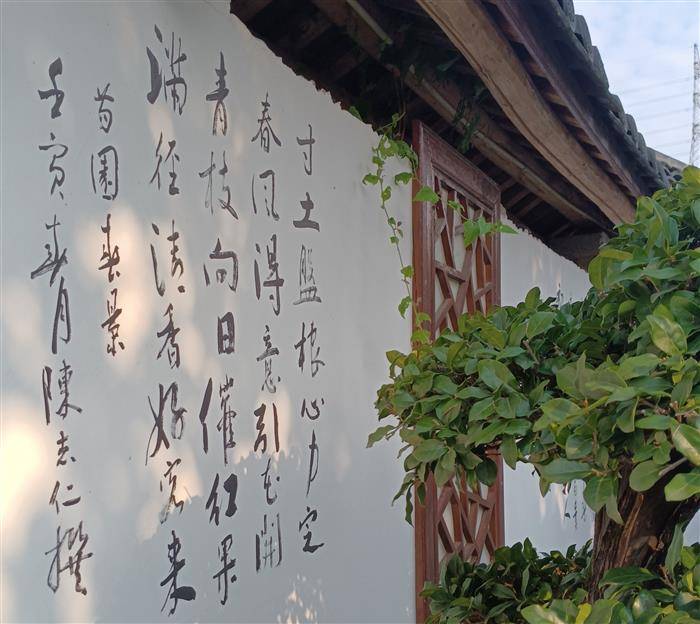 寸土盤根心力宝
春风得意引花開
青枝向日催红果
满径清香好客来
苟園春景
壬寅春月陳志仁撰